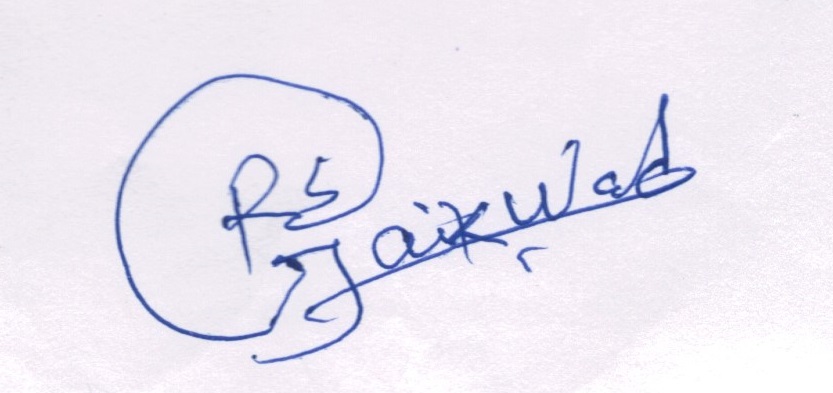 RS
Gaikwad